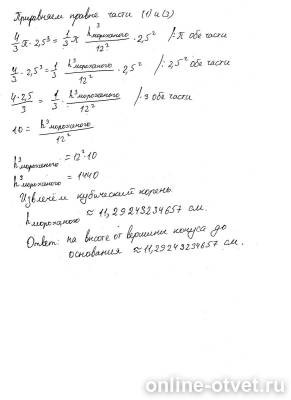 Приравняем правые части (1) и (2)
4/3 π · 2,5³ = 1/3 π h³мороженого/12² · 2,5² /: π обе части
4/3 · 2,5³ = 1/3 · h³мороженого/12² · 2,5² /: 2,5² обе части
4·2,5/3 = 1/3 · h³мороженого/12² /· 3 обе части
10 = h³мороженого/12²
h³мороженого = 12² · 10
h³мороженого = 1440
Извлечём кубический корень
hмороженого ≈ 11,29243234657 см.
Ответ: на высоте от вершины конуса до
основания ≈ 11,29243234657 см.
online-otvet.ru